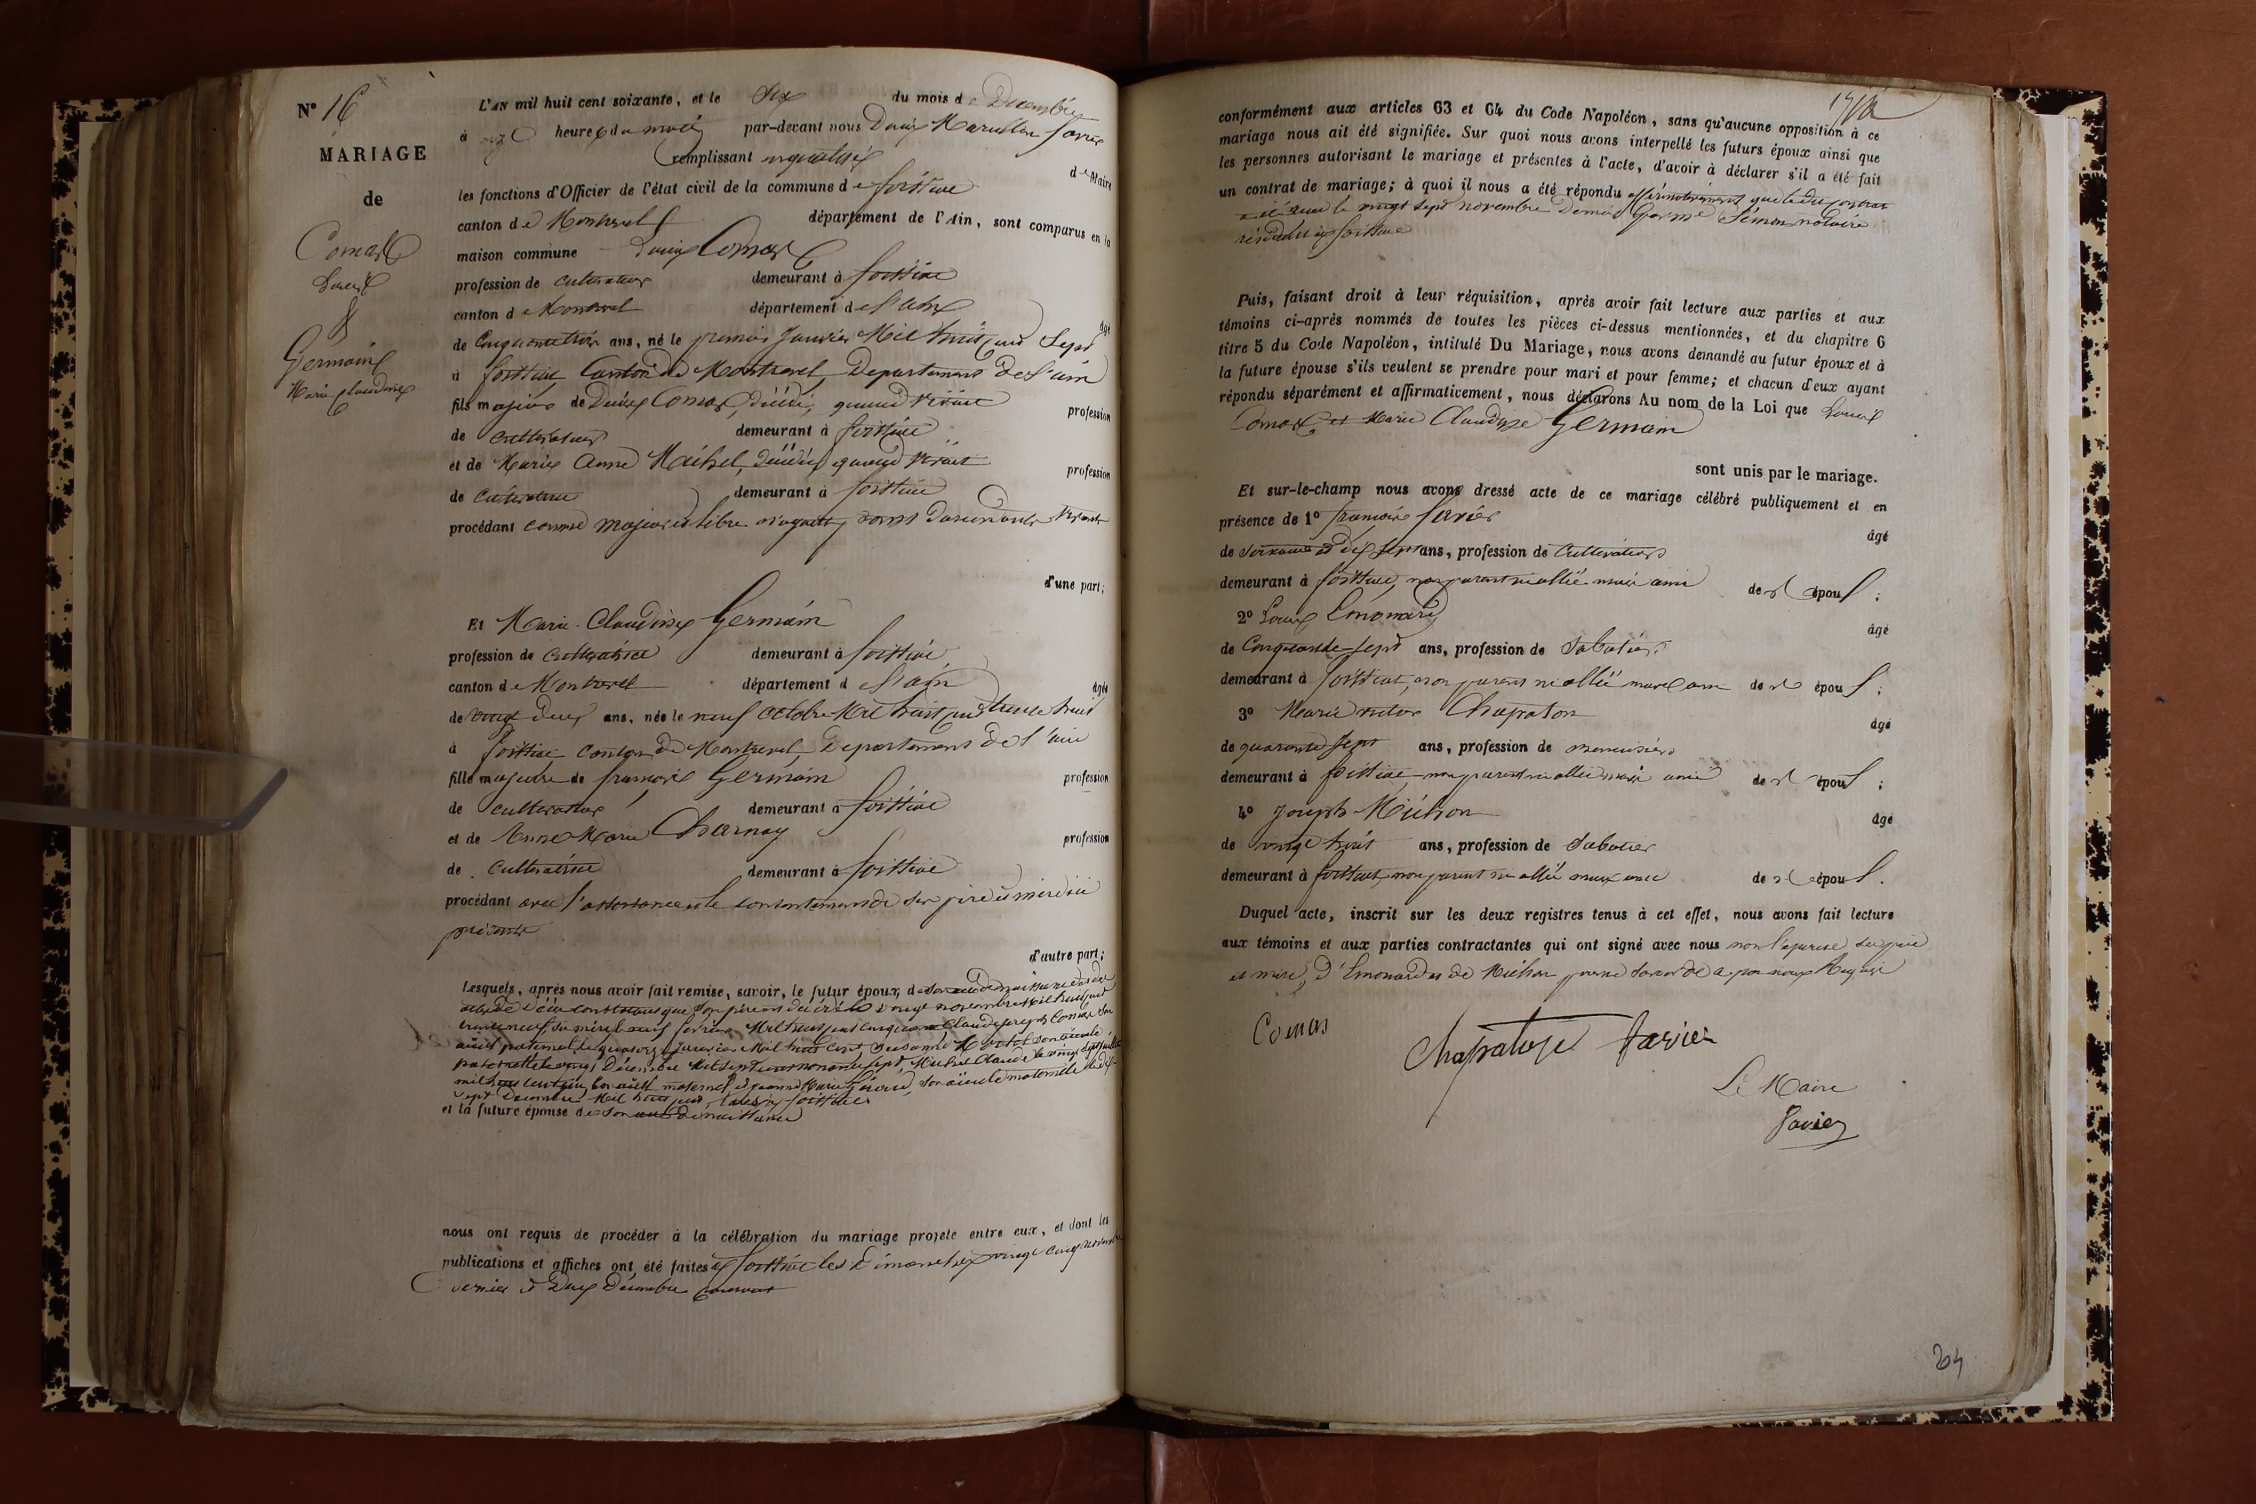 N° 16
MARIAGE
de
Comas
Louis
&
Germain
Marie Claudine
L'AN mil huit cent soixante, et le six du mois de Décembre
à heures du matin par-devant nous Favier
remplissant en qualité de Maire
les fonctions d'Officier de l'état civil de la commune de foissiat
canton de Montrevel département de l'Ain, sont comparus en la
maison commune Louis Comas
profession de cultivateur demeurant à foissiat
canton de Montrevel département de l'ain
âgé
de Cinquante trois ans, né le premier Janvier Mil huit cent Sept
à foissiat Canton de Montrevel Département de l'ain
fils majeur de Comas, décédé, quand vivait profession
de cultivateur demeurant à foissiat
et de Marie Anne Michel, décédée quand vivait profession
de Cultivatrice demeurant à foissiat
procédant comme majeur et libre n'ayant point d'ascendants vivants
d'une part;
Et Marie Claudine Germain
profession de Cultivatrice demeurant à foissiat
canton de Montrevel département de l'ain
âgée
de vingt deux ans, née le neuf octobre Mil huit cent trente huit
à foissiat canton de Montrevel Département de l'ain
fille majeure de françois Germain profession
de cultivateur demeurant à foissiat
et de Anne Marie Charnay profession
de Cultivatrice demeurant à foissiat
procédant avec l'assistance et le consentement de ses père et mère ici
présents
d'autre part;
Lesquels, après nous avoir fait remise, savoir, le futur époux, de son acte de naissance
constatant que son père est décédé le vingt novembre Mil huit cent
trente neuf, sa mère le neuf février Mil huit cent cinquante Claude Joseph Comas son
aïeul paternel le quatorze Janvier Mil huit cent son aïeule
paternelle le onze Décembre Mil sept cent nonante sept Michel Claude le vingt sept
mil huit cent son aïeul maternel et Jeanne Marie son aïeule maternelle le dix
sept Décembre Mil huit cent foissiat
et la future épouse de son acte de naissance
nous ont requis de procéder à la célébration du mariage projeté entre eux, et dont les
publications et affiches ont été faites à foissiat les dimanches vingt cinq novembre
dernier et Deux Décembre courant
conformément aux articles 63 et 64 du Code Napoléon, sans qu'aucune opposition à ce
mariage nous ait été signifiée. Sur quoi nous avons interpellé les futurs époux ainsi que
les personnes autorisant le mariage et présentes à l'acte, d'avoir à déclarer s'il a été fait
un contrat de mariage; à quoi il nous a été répondu affirmativement que le dit contrat
a été reçu le vingt sept novembre Dernier par Me notaire
résidant à foissiat
Puis, faisant droit à leur réquisition, après avoir fait lecture aux parties et aux
témoins ci-après nommés de toutes les pièces ci-dessus mentionnées, et du chapitre 6
titre 5 du Code Napoléon, intitulé Du Mariage, nous avons demandé au futur époux et à
la future épouse s'ils veulent se prendre pour mari et pour femme; et chacun d'eux ayant
répondu séparément et affirmativement, nous déclarons Au nom de la Loi que Louis
Comas et Marie Claudine Germain
sont unis par le mariage.
Et sur-le-champ nous avons dressé acte de ce mariage célébré publiquement et en
présence de 1° françois favier
âgé
de soixante et dix sept ans, profession de Cultivateur
demeurant à foissiat, non parent ni allié mais ami de l'époux;
2° Louis Emonard
âgé
de Cinquante sept ans, profession de Sabotier
demeurant à foissiat, non parent ni allié mais ami de l'époux;
3° Marie Chapaton
âgé
de quarante sept ans, profession de menuisier
demeurant à foissiat non parent ni allié mais ami de l'époux;
4° Joseph Michon
âgé
de vingt trois ans, profession de Sabotier
demeurant à foissiat, non parent ni allié mais ami de l'époux.
Duquel acte, inscrit sur les deux registres tenus à cet effet, nous avons fait lecture
aux témoins et aux parties contractantes qui ont signé avec nous non l'épouse ses père
et mère, d'Emonard et de Michon pour ne savoir de ce par nous Requis
Comas
Chapaton favier
Le Maire
favier